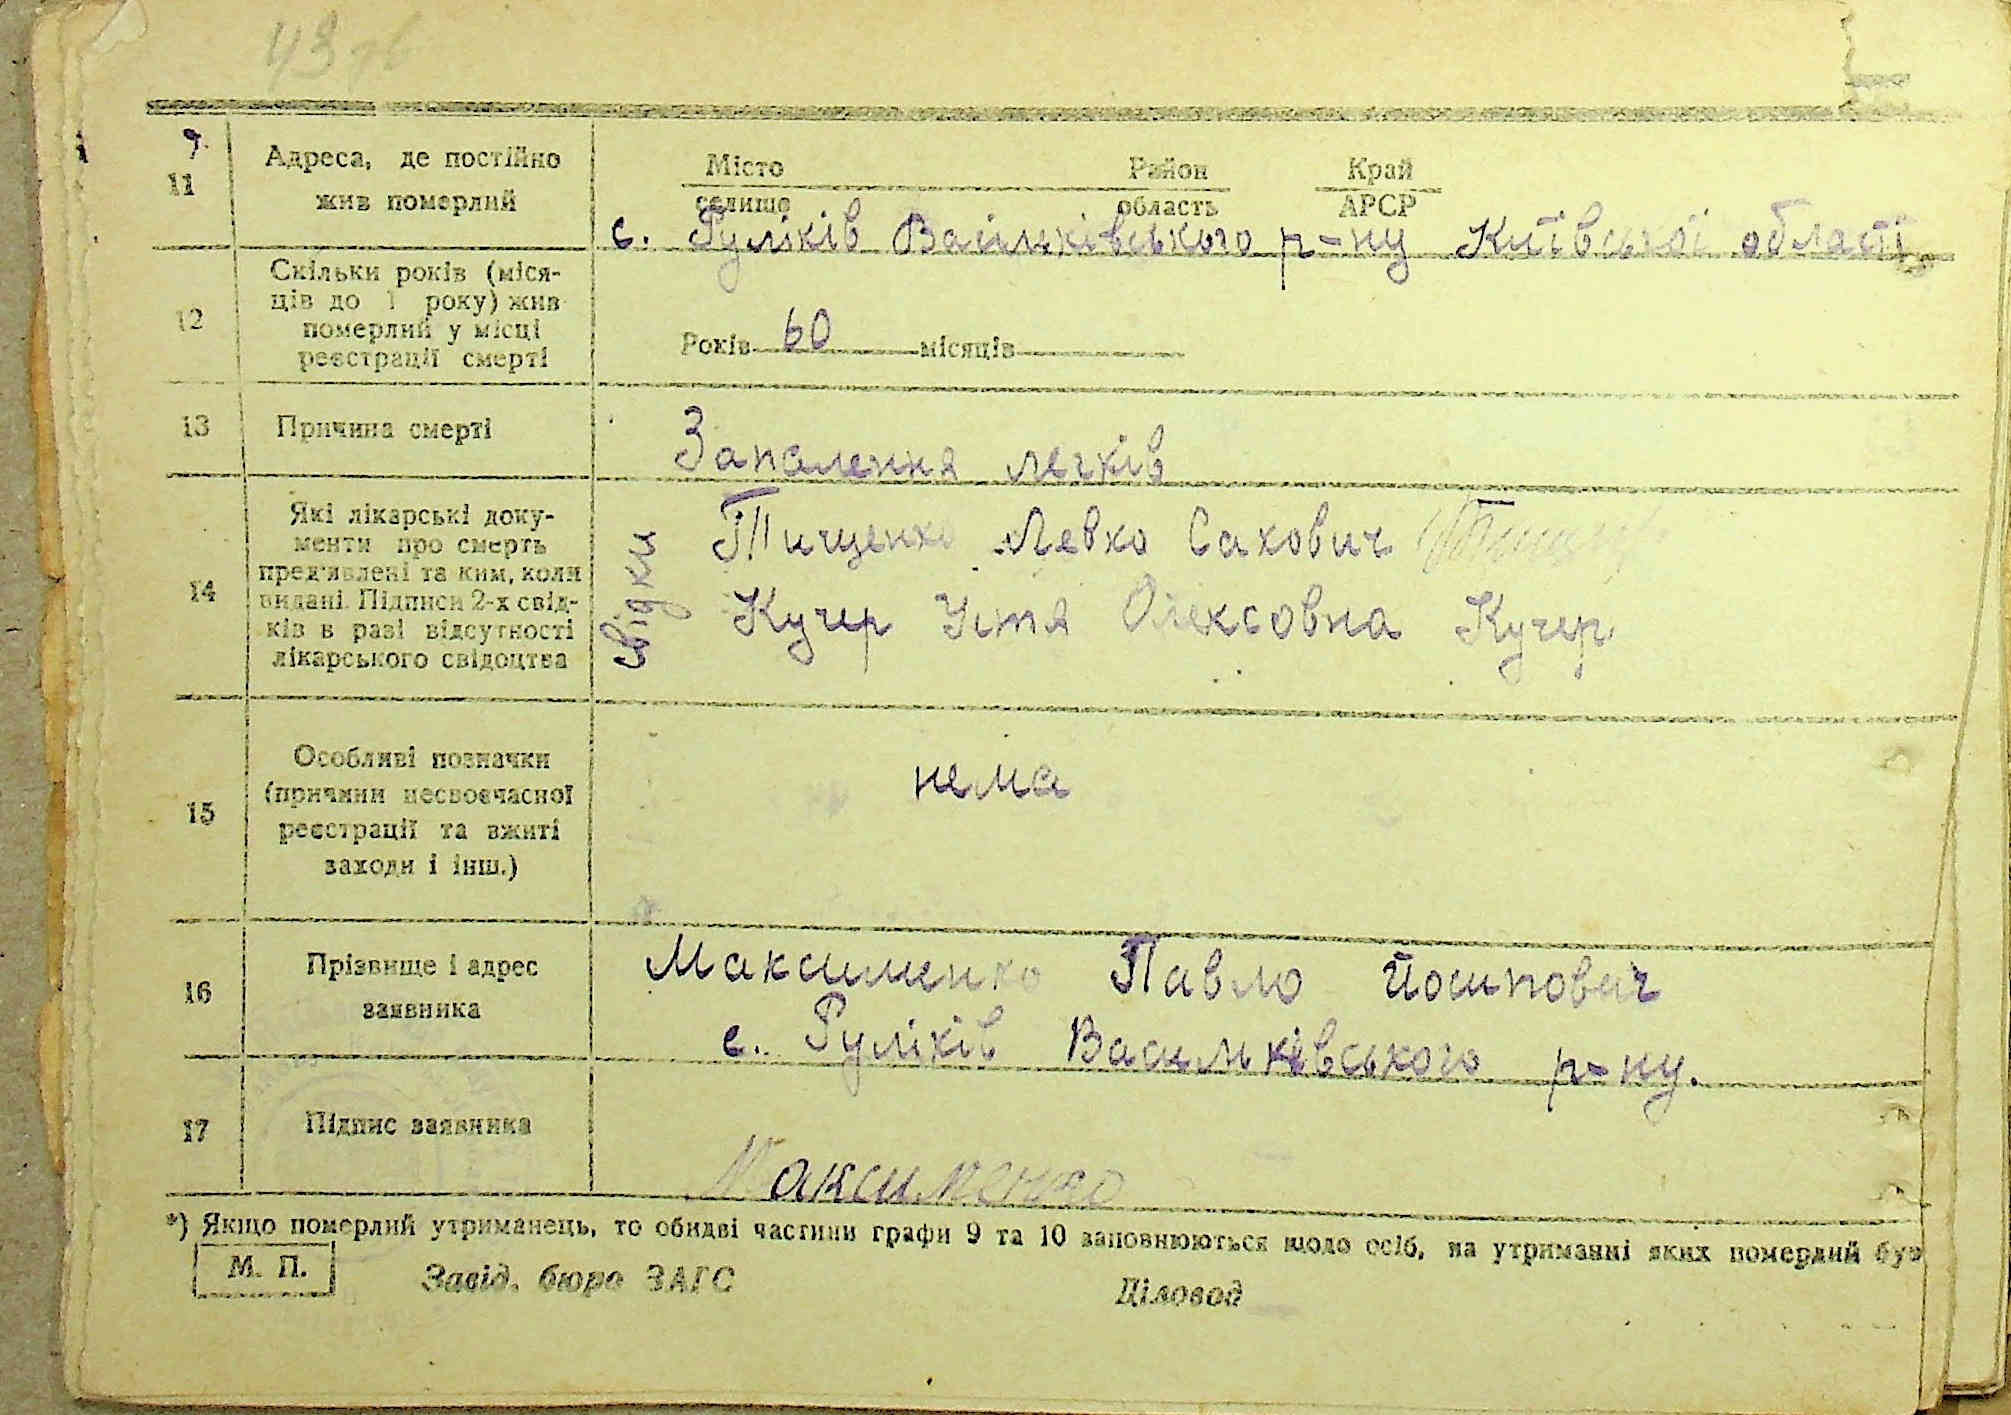 43 зв
11 Адреса, де постійно жив померлий
Місто Район Край
селище область АРСР
с. Руликів Васильківського р-ну Київської області
12 Скільки років (міся-
ців до 1 року) жив
померлий у місці
реєстрації смерті
Років 60 місяців
13 Причина смерті
Запалення легків
14 Які лікарські доку-
менти про смерть
пред'явлені та ким, коли
видані. Підписи 2-х свід-
ків в разі відсутності
лікарського свідоцтва
Свідки
Тищенко Левко Сахович
Кучер Устя Олексовна Кучер
15 Особливі позначки
(причини несвоєчасної
реєстрації та вжиті
заходи і інш.)
нема
16 Прізвище і адрес
заявника
Максименко Павло Йосипович
с. Руликів Васильківського р-ну.
17 Підпис заявника
Максименко
*) Якщо померлий утриманець, то обидві частини графи 9 та 10 заповнюються щодо осіб, на утриманні яких померлий був
М. П.
Завід. бюро ЗАГС Діловод